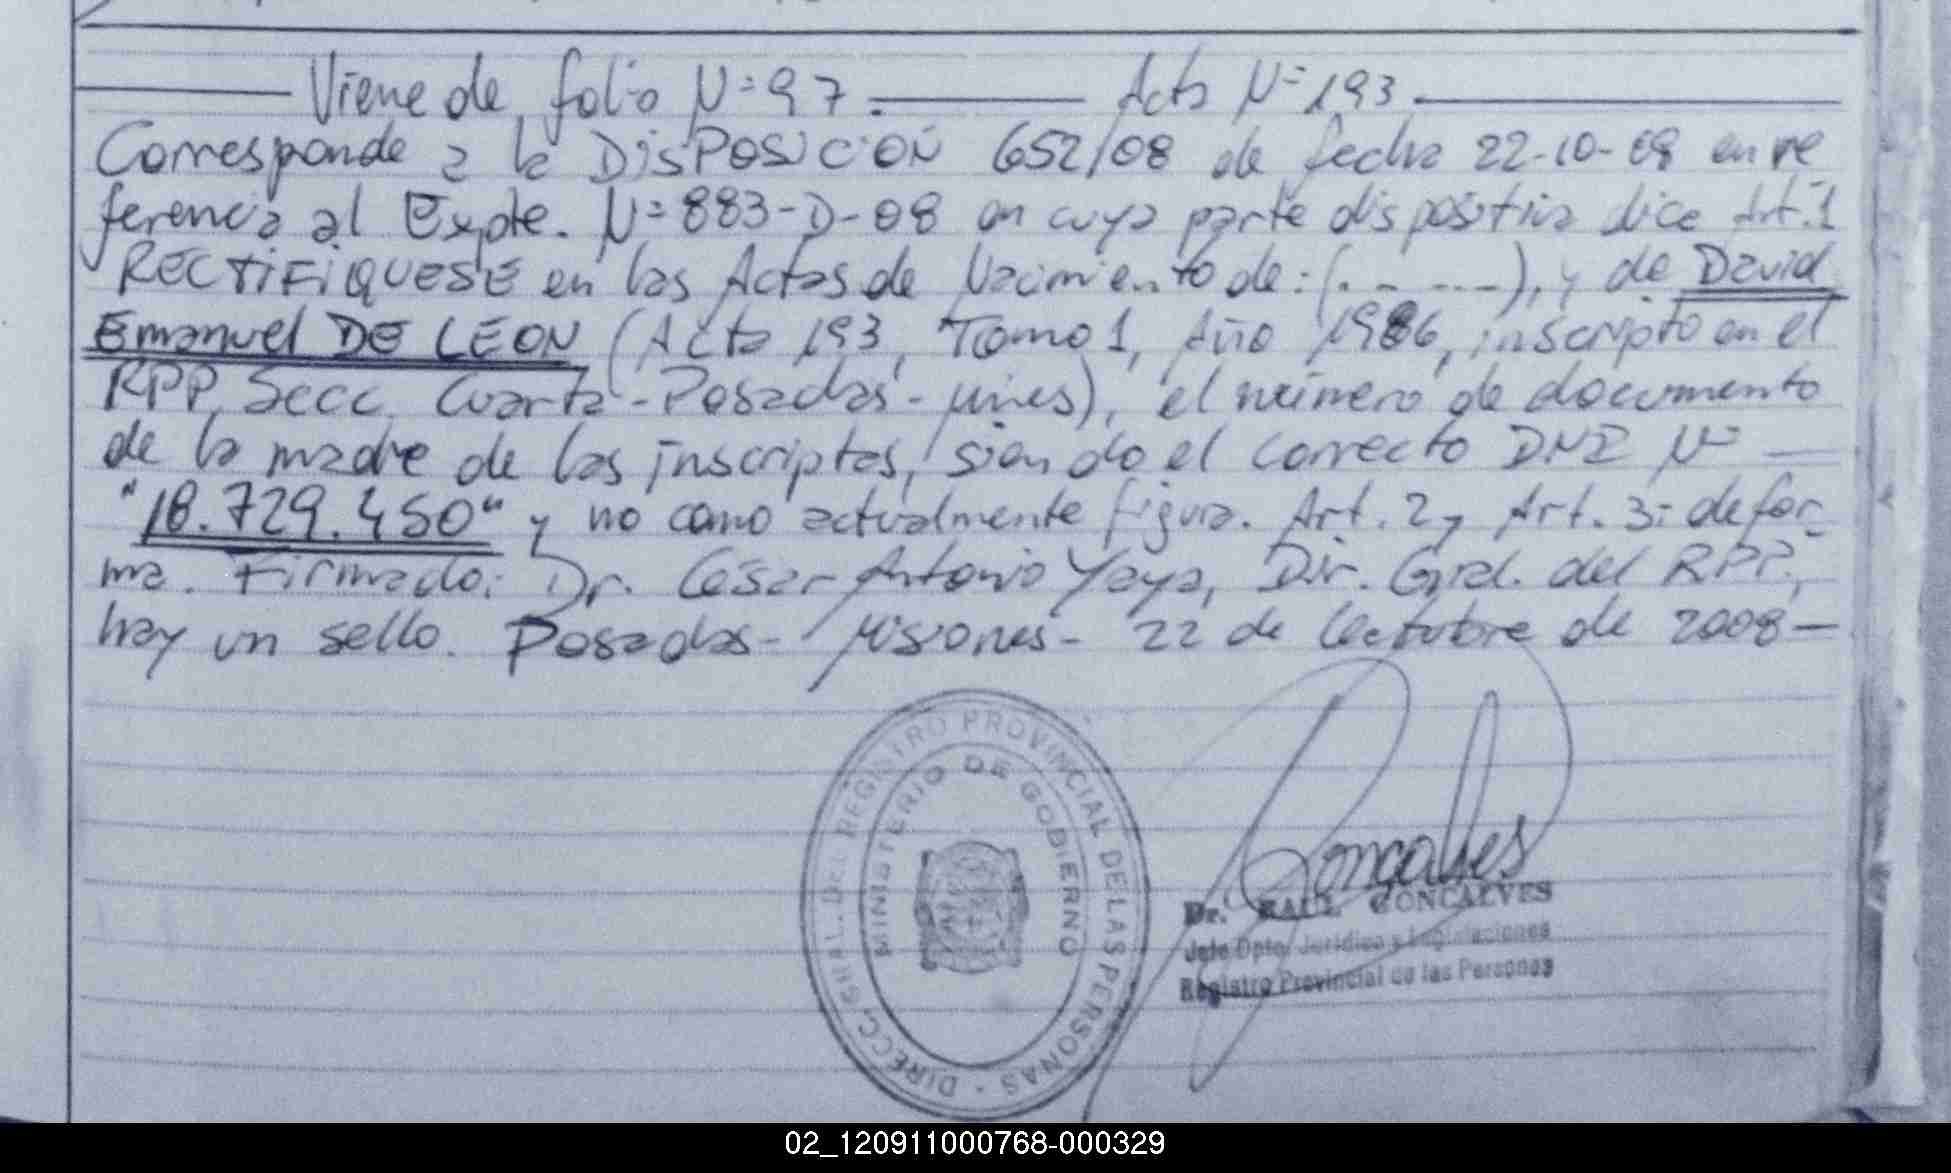 Viene de folio Nº 97. Acta Nº 193.
Corresponde a la DISPOSICION 652/08 de fecha 22-10-08 en re
ferencia al Expte. Nº 883-D-08 en cuya parte dispositiva dice Art. 1
RECTIFIQUESE en las Actas de Nacimiento de: (. - - ---), y de David
Emanuel DE LEON (Acta 193, Tomo 1, Año 1986, inscripto en el
RPP, Secc. Cuarta - Posadas - Mnes), el número de documento
de la madre de los inscriptos, siendo el correcto DNI Nº —
"18.729.450" y no como actualmente figura. Art. 2 y Art. 3: de for-
ma. Firmado: Dr. César Antonio Yaya, Dir. Gral. del RPP.,
hay un sello. Posadas - Misiones - 22 de Octubre de 2008 —
DIRECC. GRAL. DEL REGISTRO PROVINCIAL DE LAS PERSONAS -
MINISTERIO DE GOBIERNO
Goncalves
Dr. RAUL GONCALVES
Jefe Dpto. Jurídico y Legislaciones
Registro Provincial de las Personas
02_120911000768-000329